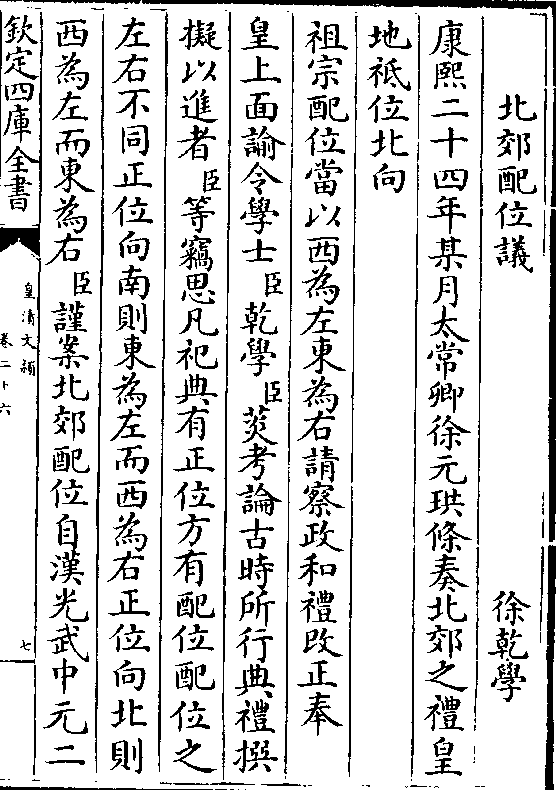 北郊配位議
徐乾學
康熙二十四年某月太常卿徐元珙條奏北郊之禮皇
地祇位北向
祖宗配位當以西為左東為右請察政和禮改正奉
皇上面諭令學士臣乾學臣菼考論古時所行典禮撰
擬以進者臣等竊思凡祀典有正位方有配位配位之
左右不同正位向南則東為左而西為右正位向北則
西為左而東為右臣謹案北郊配位自漢光武中元二
欽定四庫全書
皇清文穎
卷二十六
七